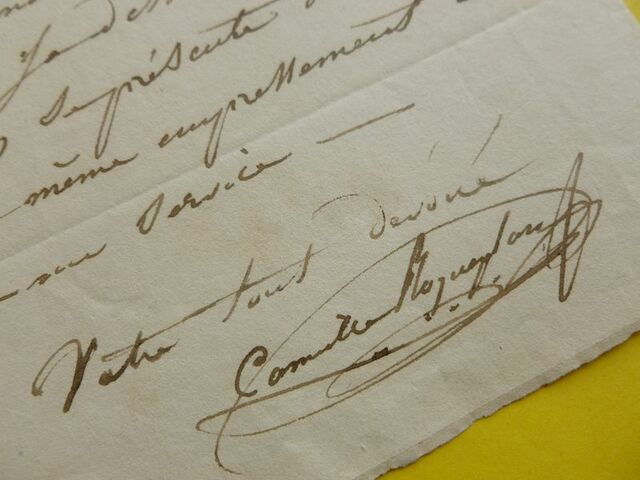 se présente
même empressement
service —
Votre tout dévoué
Camille Roqueplan